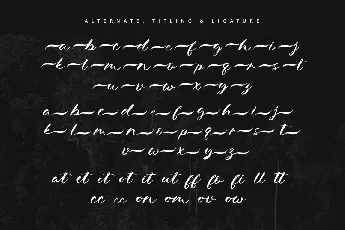 ALTERNATE, TITLING & LIGATURE
a b c d e f g h i j
k l m n o p q r s t
u v w x y z
a b c d e f g h i j
k l m n o p q r s t
u v w x y z
at et it ot it ut ff fb fi ll tt
ee cc on om ov ow